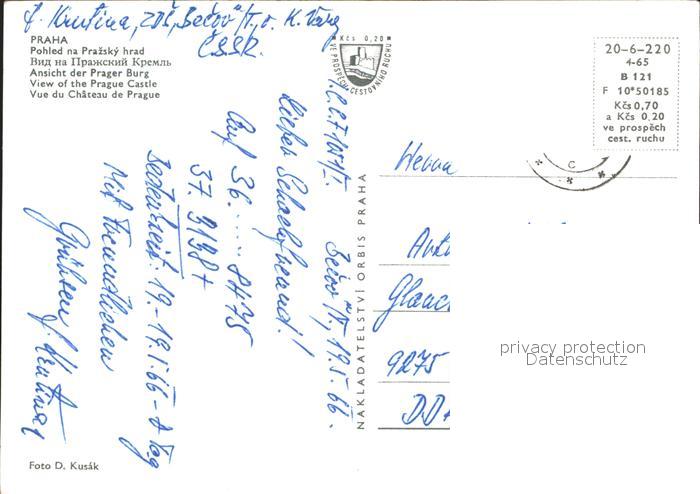 J. Krutina, ZDŠ, "Bečov" n/T, o. K. Vary
Č.S.S.R.
PRAHA
Pohled na Pražský hrad
Вид на Пражский Кремль
Ansicht der Prager Burg
View of the Prague Castle
Vue du Château de Prague
Kčs 0,20
VE PROSPĚCH CESTOVNÍHO RUCHU
20-6-220
4-65
B 121
F 10*50185
Kčs 0,70
a Kčs 0,20
ve prospěch
cest. ruchu
Bečov n/T, 19.I.66.
Lieber Schachfreund!
Auf 36. .... 8475
37. 9198+
Bedenkzeit 19.-19.I.66 - 0 Tag
Mit freundlichen
Grüssen J. Krutina
NAKLADATELSTVÍ ORBIS PRAHA
Herrn
Glauc
9275
DD
privacy protection
Datenschutz
Foto D. Kusák